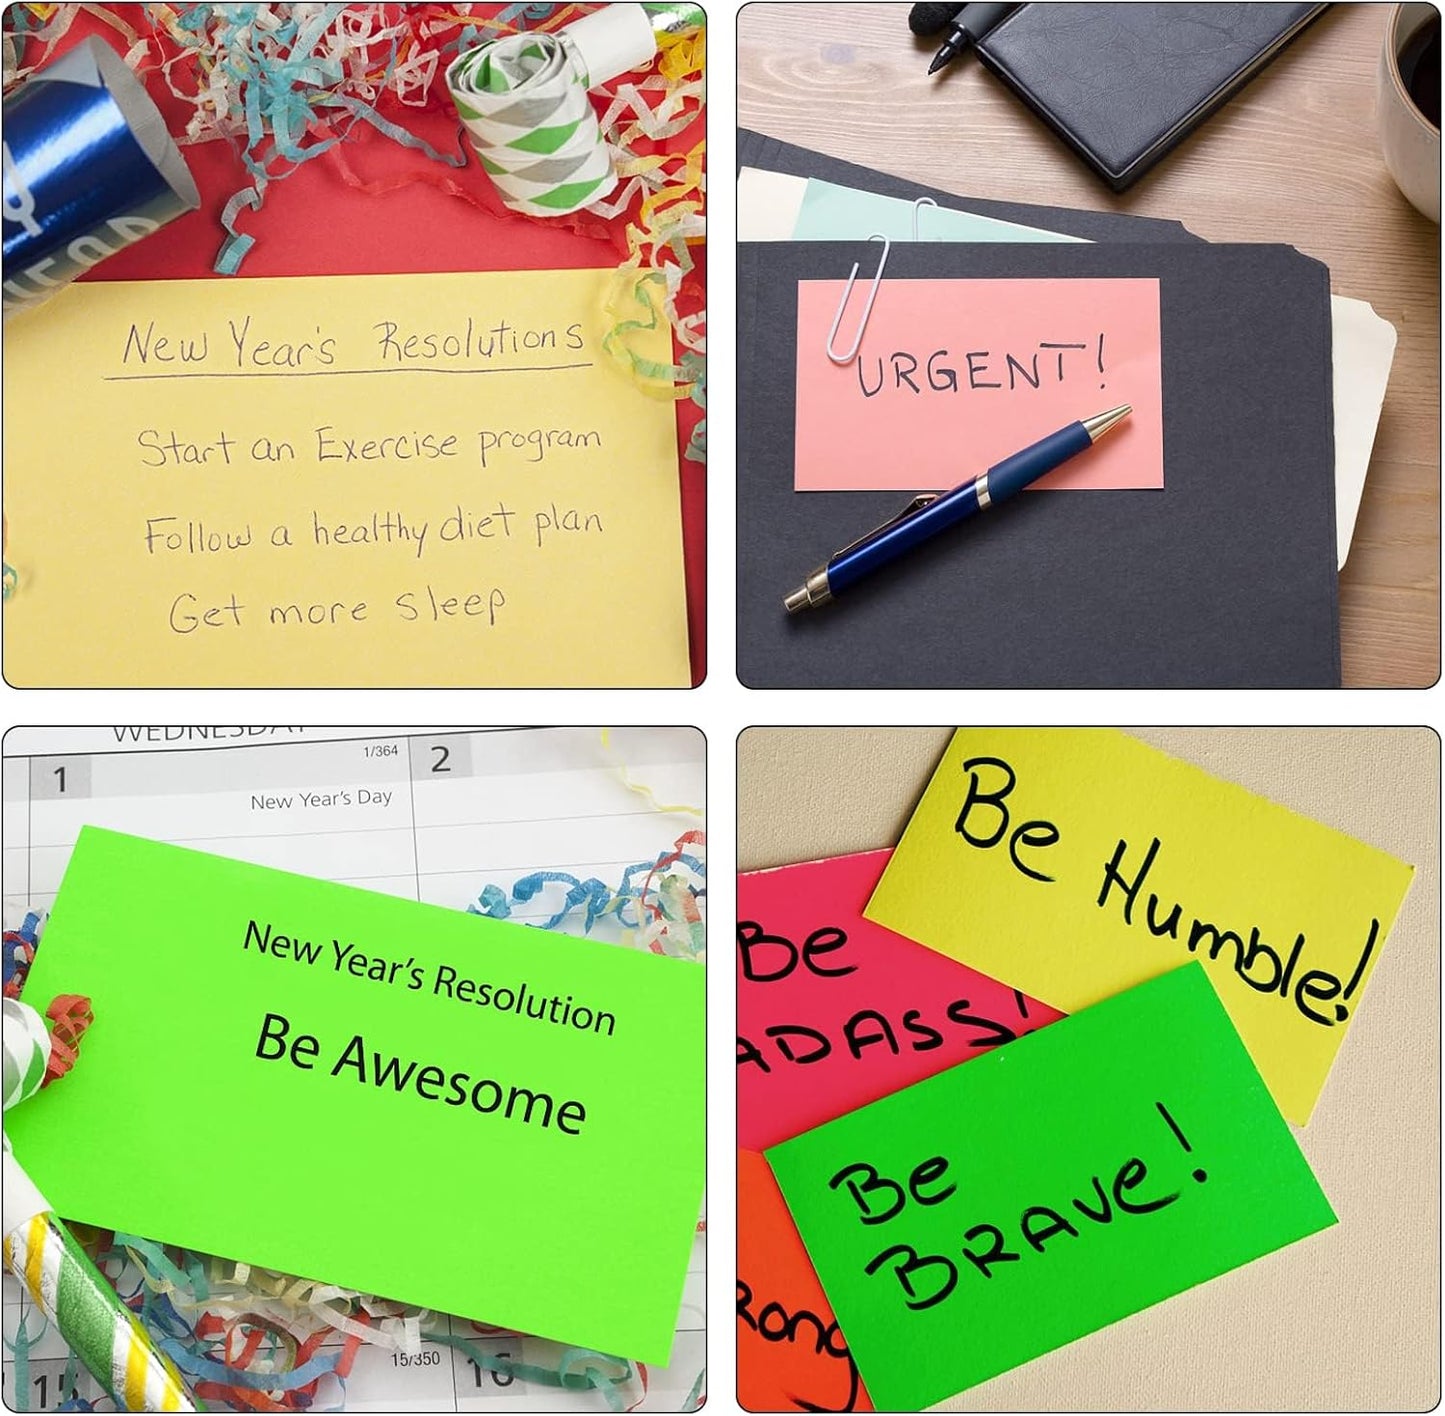 New Year's Resolutions
Start an Exercise program
Follow a healthy diet plan
Get more sleep
URGENT!
WEDNESDAY
1
1/364
2
New Year's Day
New Year's Resolution
Be Awesome
15
15/350
16
Be Humble!
Be
ADASS!
Be
BRAVE!
rong